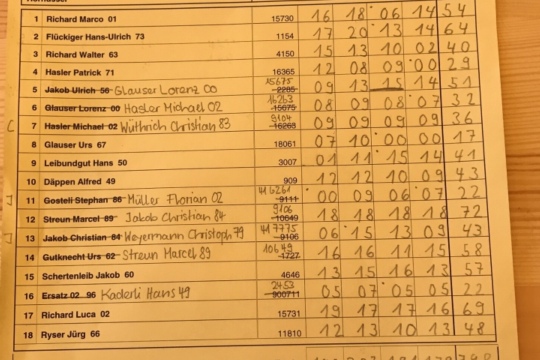 1 Richard Marco 01 15730 16 18 06 14 54
2 Flückiger Hans-Ulrich 73 1154 17 20 13 14 64
3 Richard Walter 63 4150 15 13 10 02 40
4 Hasler Patrick 71 16365 12 08 09 00 29
5 Jakob Ulrich 56 Glauser Lorenz 00 15675 2285 09 13 15 14 51
6 Glauser Lorenz 00 Hasler Michael 02 16263 15675 08 09 08 07 32
7 Hasler Michael 02 Wüthrich Christian 83 9104 16263 09 09 09 09 36
8 Glauser Urs 67 18061 07 10 00 00 17
9 Leibundgut Hans 50 3007 01 11 15 14 41
10 Däppen Alfred 49 909 12 12 10 09 43
11 Gosteli Stephan 86 Müller Florian 02 9111 00 09 06 07 22
12 Streun Marcel 89 Jakob Christian 84 9106 10649 18 18 18 18 72
13 Jakob Christian 84 Weyermann Christoph 79 417775 9106 06 15 13 09 43
14 Gutknecht Urs 62 Streun Marcel 89 10649 1727 16 16 11 15 58
15 Schertenleib Jakob 60 4646 13 15 16 13 57
16 Ersatz 02 96 Kaderli Hans 49 2453 900711 05 07 05 05 22
17 Richard Luca 02 15731 19 17 17 16 69
18 Ryser Jürg 66 11810 12 13 10 13 48